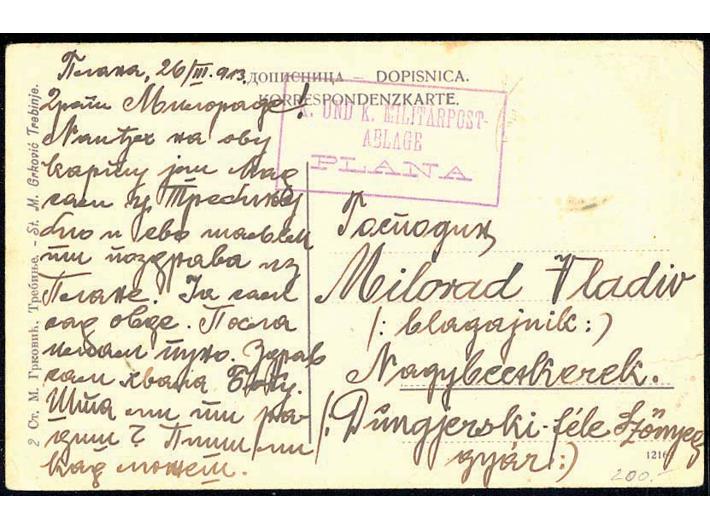 Плана, 26/III. 913.
ДОПИСНИЦА — DOPISNICA.
KORRESPONDENZKARTE.
K. UND K. MILITÄRPOST-
ABLAGE
PLANA
Драги Милораде!
на ову
карту још кад
сам у Требињу
био и ево шаљем
ти поздрава из
Плане. Ја сам
сад овде. Посла
имам пуно. Здрав
сам хвала Богу.
Шта ми ти ра-
диш? Пиши ми
кад можеш.
Господин
Milorad Vladiv
/: blagajnik :/
Nagybecskerek.
/: Dungjerski-féle Szőnyeg
gyár :/
1216
200.-
2 Ст. М. Грковић, Требиње. - St. M. Grković Trebinje.